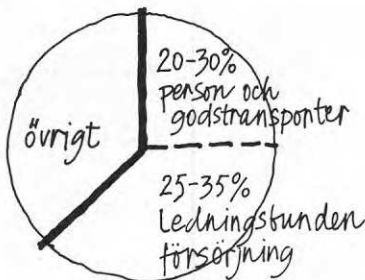 20-30%
person och
godstransporter
övrigt
25-35%
Ledningsbunden
försörjning